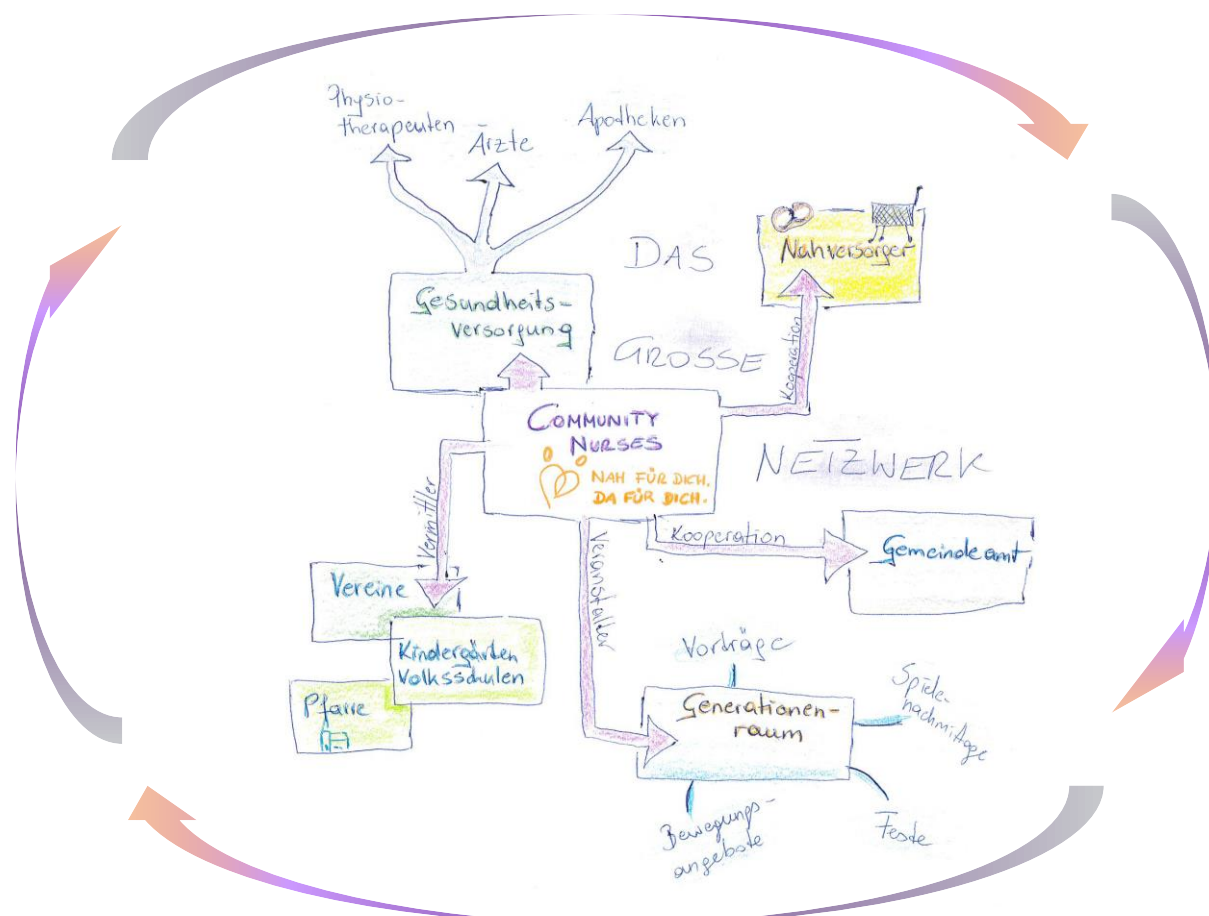 Physio-
therapeuten
Ärzte
Apotheken
DAS
GROSSE
NETZWERK
Nahversorger
Gesundheits-
versorgung
Kooperation
COMMUNITY
NURSES
NAH FÜR DICH.
DA FÜR DICH.
Vermittler
Veranstalter
Kooperation
Gemeindeamt
Vereine
Kindergärten
Volksschulen
Pfarre
Vorträge
Generationen-
raum
Spiele-
nachmittage
Bewegungs-
angebote
Feste